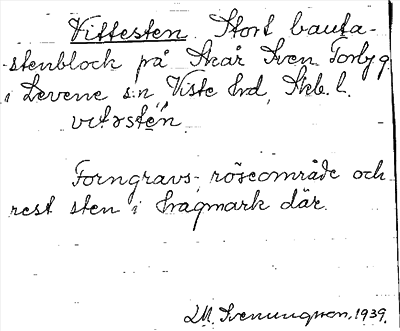 Vittesten Stort bauta-
-stenblock på Skår Sven Torbj g.
i Levene s:n Viste hrd, Skb. l.
vitəstén
Forngravs- röseområde och
rest sten i hagmark där.
LM. Svenungsson. 1939.